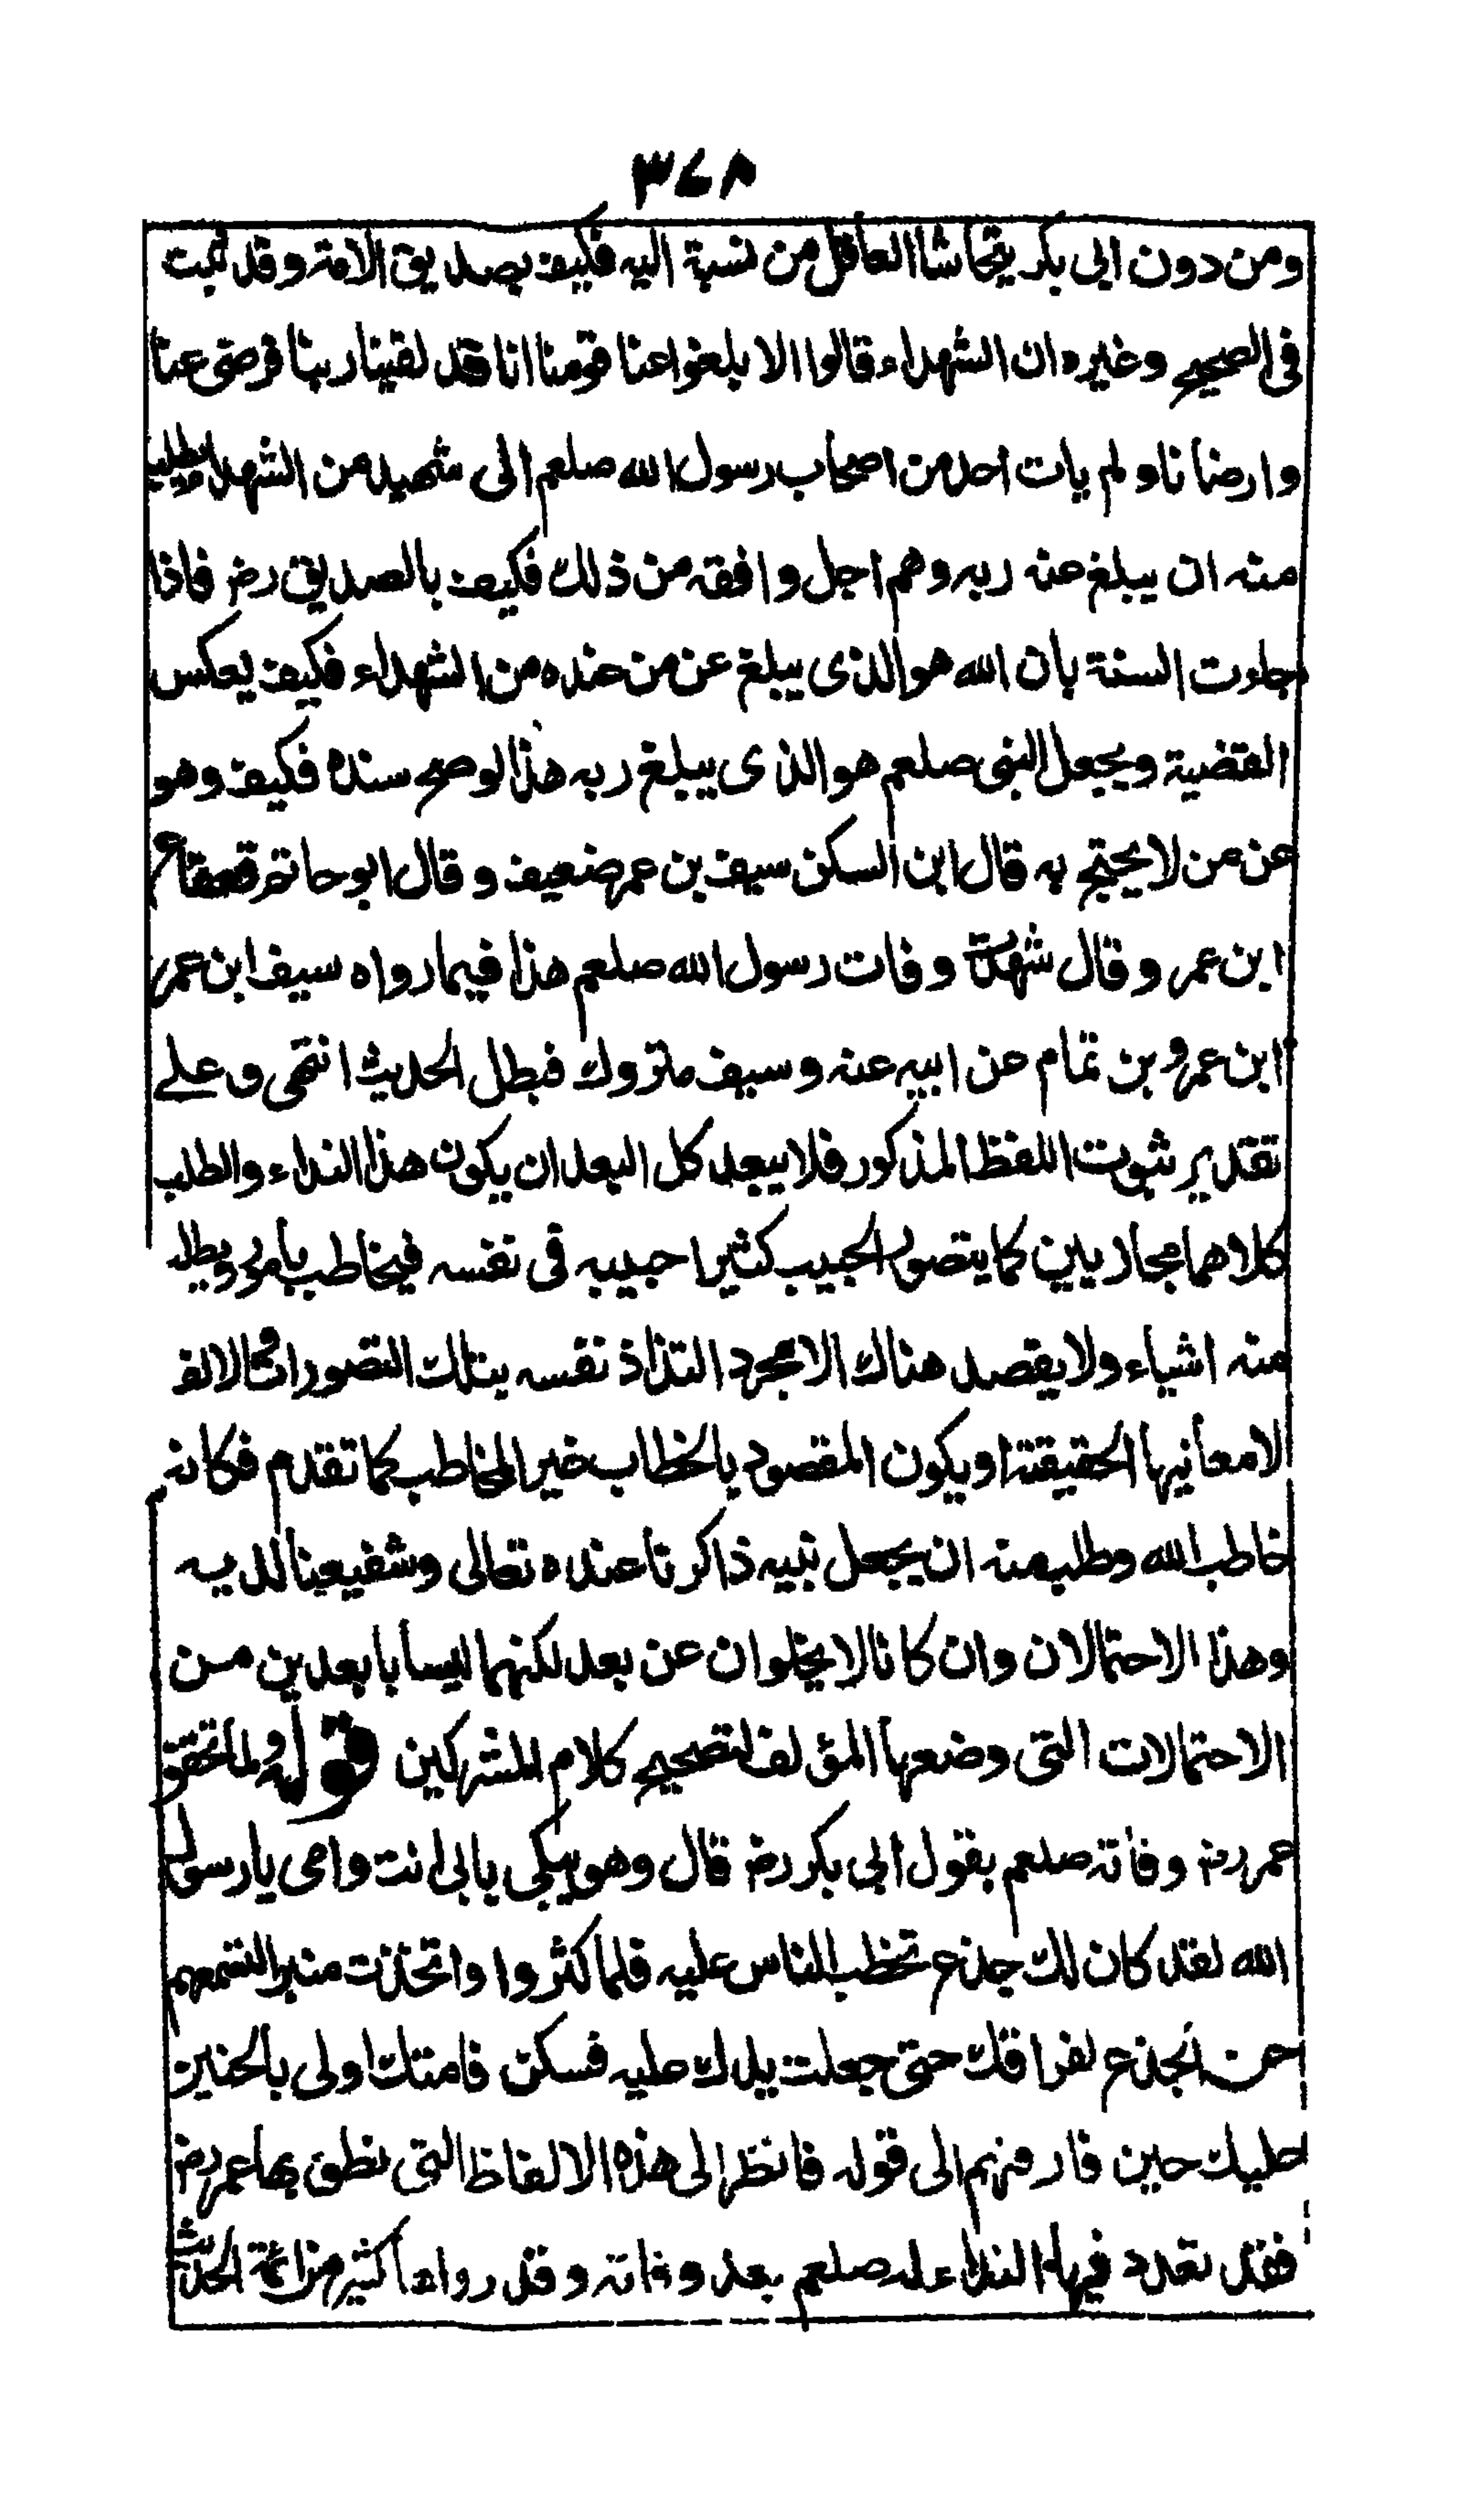 ٣٤٨
ومن دون ابى بكر يتحاشا العاقل من نسبة اليه فكيف بصديق الامة وقد ثبت
فى الصحيح وغيره ان الشهداء قالوا الا بلغوا عنا قومنا انا قد لقينا ربنا فرضى عنا
وارضانا ولم يات احد من اصحاب رسول الله صلعم الى شهيد من الشهداء
منه ان يبلغ عنه ربه وهم اجل وافقه من ذلك فكيف بالصديق رضـ فاذا
جاءت السنة بان الله هو الذى يبلغ عن من عنده من الشهداء فكيف يعكس
القضية ويجعل النبى صلعم هو الذى يبلغ ربه هذا لو صح سنده فكيف وهو
عن من لا يحتج به قال ابن السكن سيف بن عمر ضعيف وقال ابو حاتم
ابن عمر وقال وفات رسول الله صلعم هذا فيما رواه سيف ابن عمر
ابن عمرو بن تمام عن ابيه عنه وسيف متروك فبطل الحديث انتهى وعلى
تقدير ثبوت اللفظ المذكور فلا يبعد كل البعد ان يكون هذا النداء والطلب
كلاهما مجاريين كما يتصور الحبيب كثيرا حبيبه فى نفسه فيخاطب بامور ويطلب
منه اشياء ولا يقصد هناك الا مجرد التذاذ نفسه بتلك التصورات
لا معانيها الحقيقة او يكون المقصود بالخطاب غير المخاطب كما تقدم فكانه
خاطب الله وطلب منه ان يجعل نبيه ذاكرنا عنده تعالى وشفيعنا لديه
وهذا الاحتمالان وان كانا لا يخلوان عن بعد لكنهما ليسا بابعدين من
الاحتمالات التى وضعها المؤلف لتصحيح كلام المشركين قوله ولما تحقق
عمر رضـ وفاته صلعم بقول ابى بكر رضـ قال وهو يبكى بابى انت وامى يا رسول
الله لقد كان لك جذع تخطب الناس عليه فلما كثروا واتخذت منبرا لتسمعهم
حن الجذع لفراقك حتى جعلت يدك عليه فسكن فامتك اولى بالحنين
عليك حين فارقتهم الى قوله فانظر الى هذه الالفاظ التى نطق بها عمر رضـ
فقد تعدد فيها النداء له صلعم بعد وفاته وقد رواها كثير من ائمة الحديث